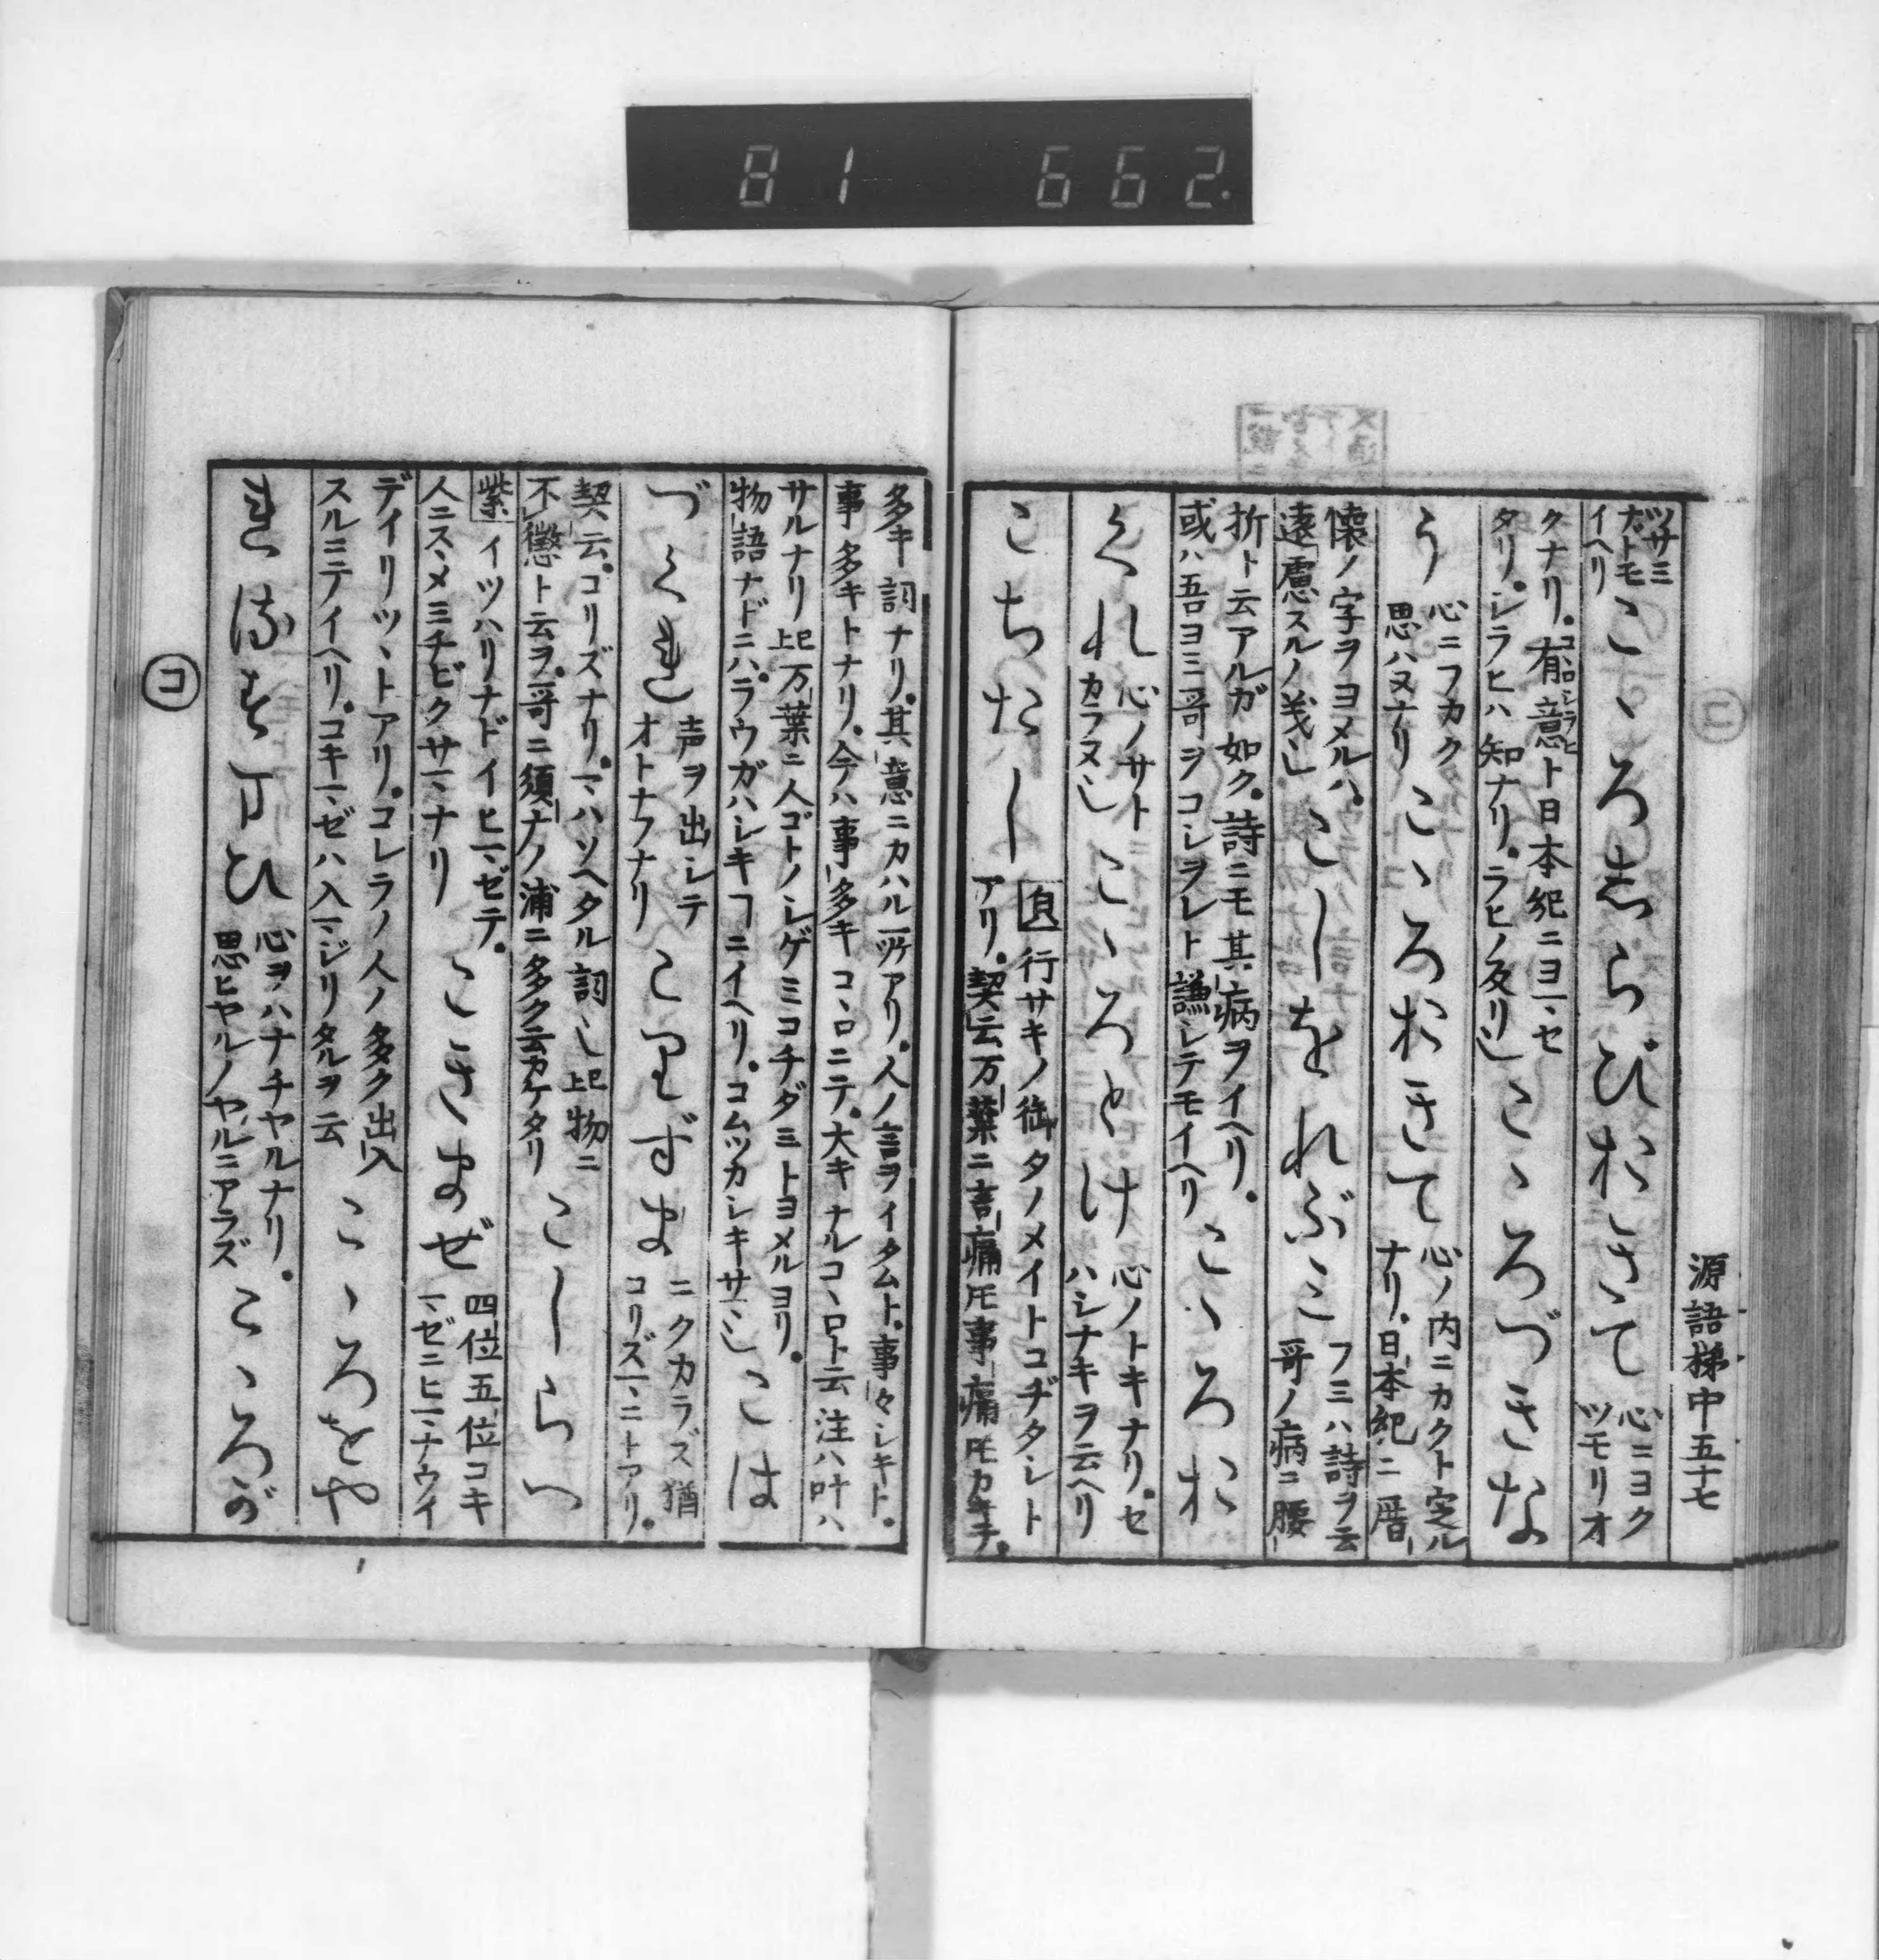 81 662.
源語梯中五十七
ツサミ
ナトモ
イヘリ
こゝろしらびおきて
心ニヨク
ツモリオ
クナリ。有意ト日本紀ニヨマセ
コヽロシラヒ
タリ。シラヒハ知ナリ。ラヒノ反リ也
こゝろづきな
う
心ニフカク
思ハヌナリ
こゝろおきて
心ノ内ニカクト定ル
ナリ。日本紀ニ厝
懐ノ字ヲヨメルハ。
遠慮スルノ義也
こしをれぶミ
フミハ詩ヲ云
哥ノ病ニ腰
折ト云アルガ如ク。詩ニモ其病ヲイヘリ。
或ハ吾ヨミ哥ヲコシヲレト謙シテモイヘリ
こゝろお
くれ
心ノサト
カラヌ也
こゝろとけ
心ノトキナリ。セ
ハシナキヲ云ヘリ
こちたし
行サキノ御タノメイトコヂタシト
アリ。契云万葉ニ言痛トモ事痛トモカキテ。
多キ詞ナリ。其意ニカハル所アリ。人ノ言ヲイタムト。事々シキト。
事多キトナリ。今ハ事多キコヽロニテ。大キナルコヽロト云注ハ叶ハ
サルナリ 万葉ニ人ゴトノシゲミコチダミトヨメルヨリ。
物語ナドニハ。ラウガハシキコトニイヘリ。コムツカシキサマ也
こは
づくれ
声ヲ出シテ
オトナフナリ
こりずま
ニクカラズ猶
コリズマニトアリ。
契云。コリズナリ。マハソヘタル詞也 物ニ
不懲ト云ヲ。哥ニ須ナノ浦ニ多ク云カケタリ
こしらへ
紫イツハリナドイヒマゼテ。
人ニスヽメミチビクサマナリ
こきまぜ
四位五位コキ
マゼニヒマナウイ
デイリツヽトアリ。コレラノ人ノ多ク出入
スルミテイヘリ。コキマゼハ入マジリタルヲ云
こゝろをや
心ヲハナチヤルナリ。
思ヒヤルノヤルニアラズ
こゝろが
コ